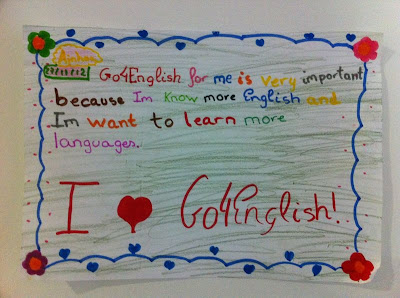 Go4English for me is very important
because Im know more English and
Im want to learn more
languages.
I ♥ Go4English!